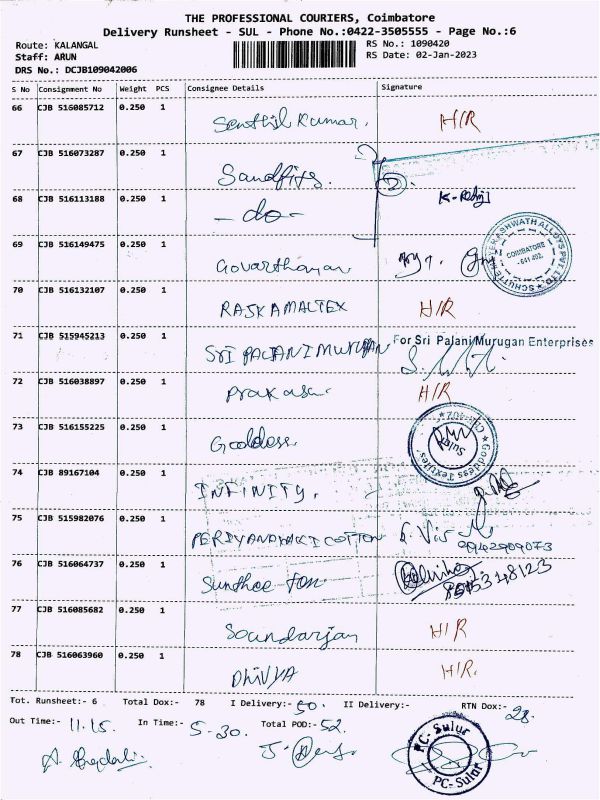 THE PROFESSIONAL COURIERS, Coimbatore
Delivery Runsheet - SUL - Phone No.:0422-3505555 - Page No.:6
Route: KALANGAL
RS No.: 1090420
Staff: ARUN
RS Date: 02-Jan-2023
DRS No.: DCJB109042006
S No Consignment No Weight PCS Consignee Details Signature
66 CJB 516085712 0.250 1 Senthil Kumar. H/R
67 CJB 516073287 0.250 1 Sandfits.
68 CJB 516113188 0.250 1 - do -
69 CJB 516149475 0.250 1 Govarthanan
COIMBATORE
- 641 402.
70 CJB 516132107 0.250 1 RAJKAMALTEX H/R
71 CJB 515945213 0.250 1 SRI PALANI MURUGAN For Sri Palani Murugan Enterprises
72 CJB 516038897 0.250 1 Prakash H/R
73 CJB 516155225 0.250 1 Goddess
Goddess Textiles
Sulur
74 CJB 89167104 0.250 1 INFINITY.
75 CJB 515982076 0.250 1 COTTON
9942909073
76 CJB 516064737 0.250 1
77 CJB 516085682 0.250 1 Soundarjan H/R
78 CJB 516063960 0.250 1 DHIVYA H/R.
Tot. Runsheet:- 6 Total Dox:- 78 I Delivery:- 50. II Delivery:- RTN Dox:- 28.
Out Time:- 11.15. In Time:- 5-30. Total POD:- 52.
PC- Sulur
PC- Sulur